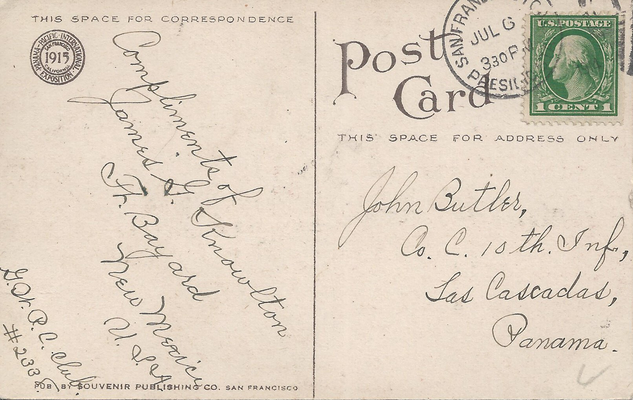 THIS SPACE FOR CORRESPONDENCE
PANAMA-PACIFIC INTERNATIONAL EXPOSITION
SAN FRANCISCO
1915
CALIFORNIA
Compliments of
James G. Knowlton
Ft. Bayard
New Mexico
U.S.A.
P.C. Club
#233
PUB BY SOUVENIR PUBLISHING CO. SAN FRANCISCO
Post
Card
SAN FRAN
JUL 6
330 P
PRESID
U.S. POSTAGE
1 CENT 1
THIS SPACE FOR ADDRESS ONLY
John Butler,
Co. C. 10th. Inf,
Las Cascadas,
Panama.